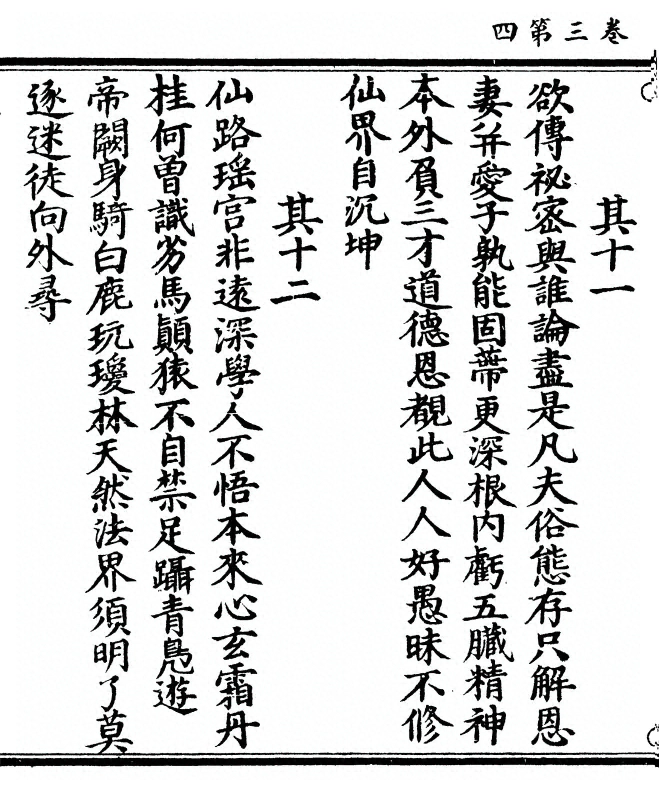 卷三第四
其十一
欲傳祕密與誰論盡是凡夫俗態存只解恩
妻并愛子孰能固蔕更深根内虧五臟精神
本外負三才道德恩覩此人人好愚昧不修
仙界自沉坤
其十二
仙路瑶宫非遠深學人不悟本來心玄霜丹
桂何曾識劣馬顛猿不自禁足躡青鳧遊
帝闕身騎白鹿玩瓊林天然法界須明了莫
逐迷徒向外尋